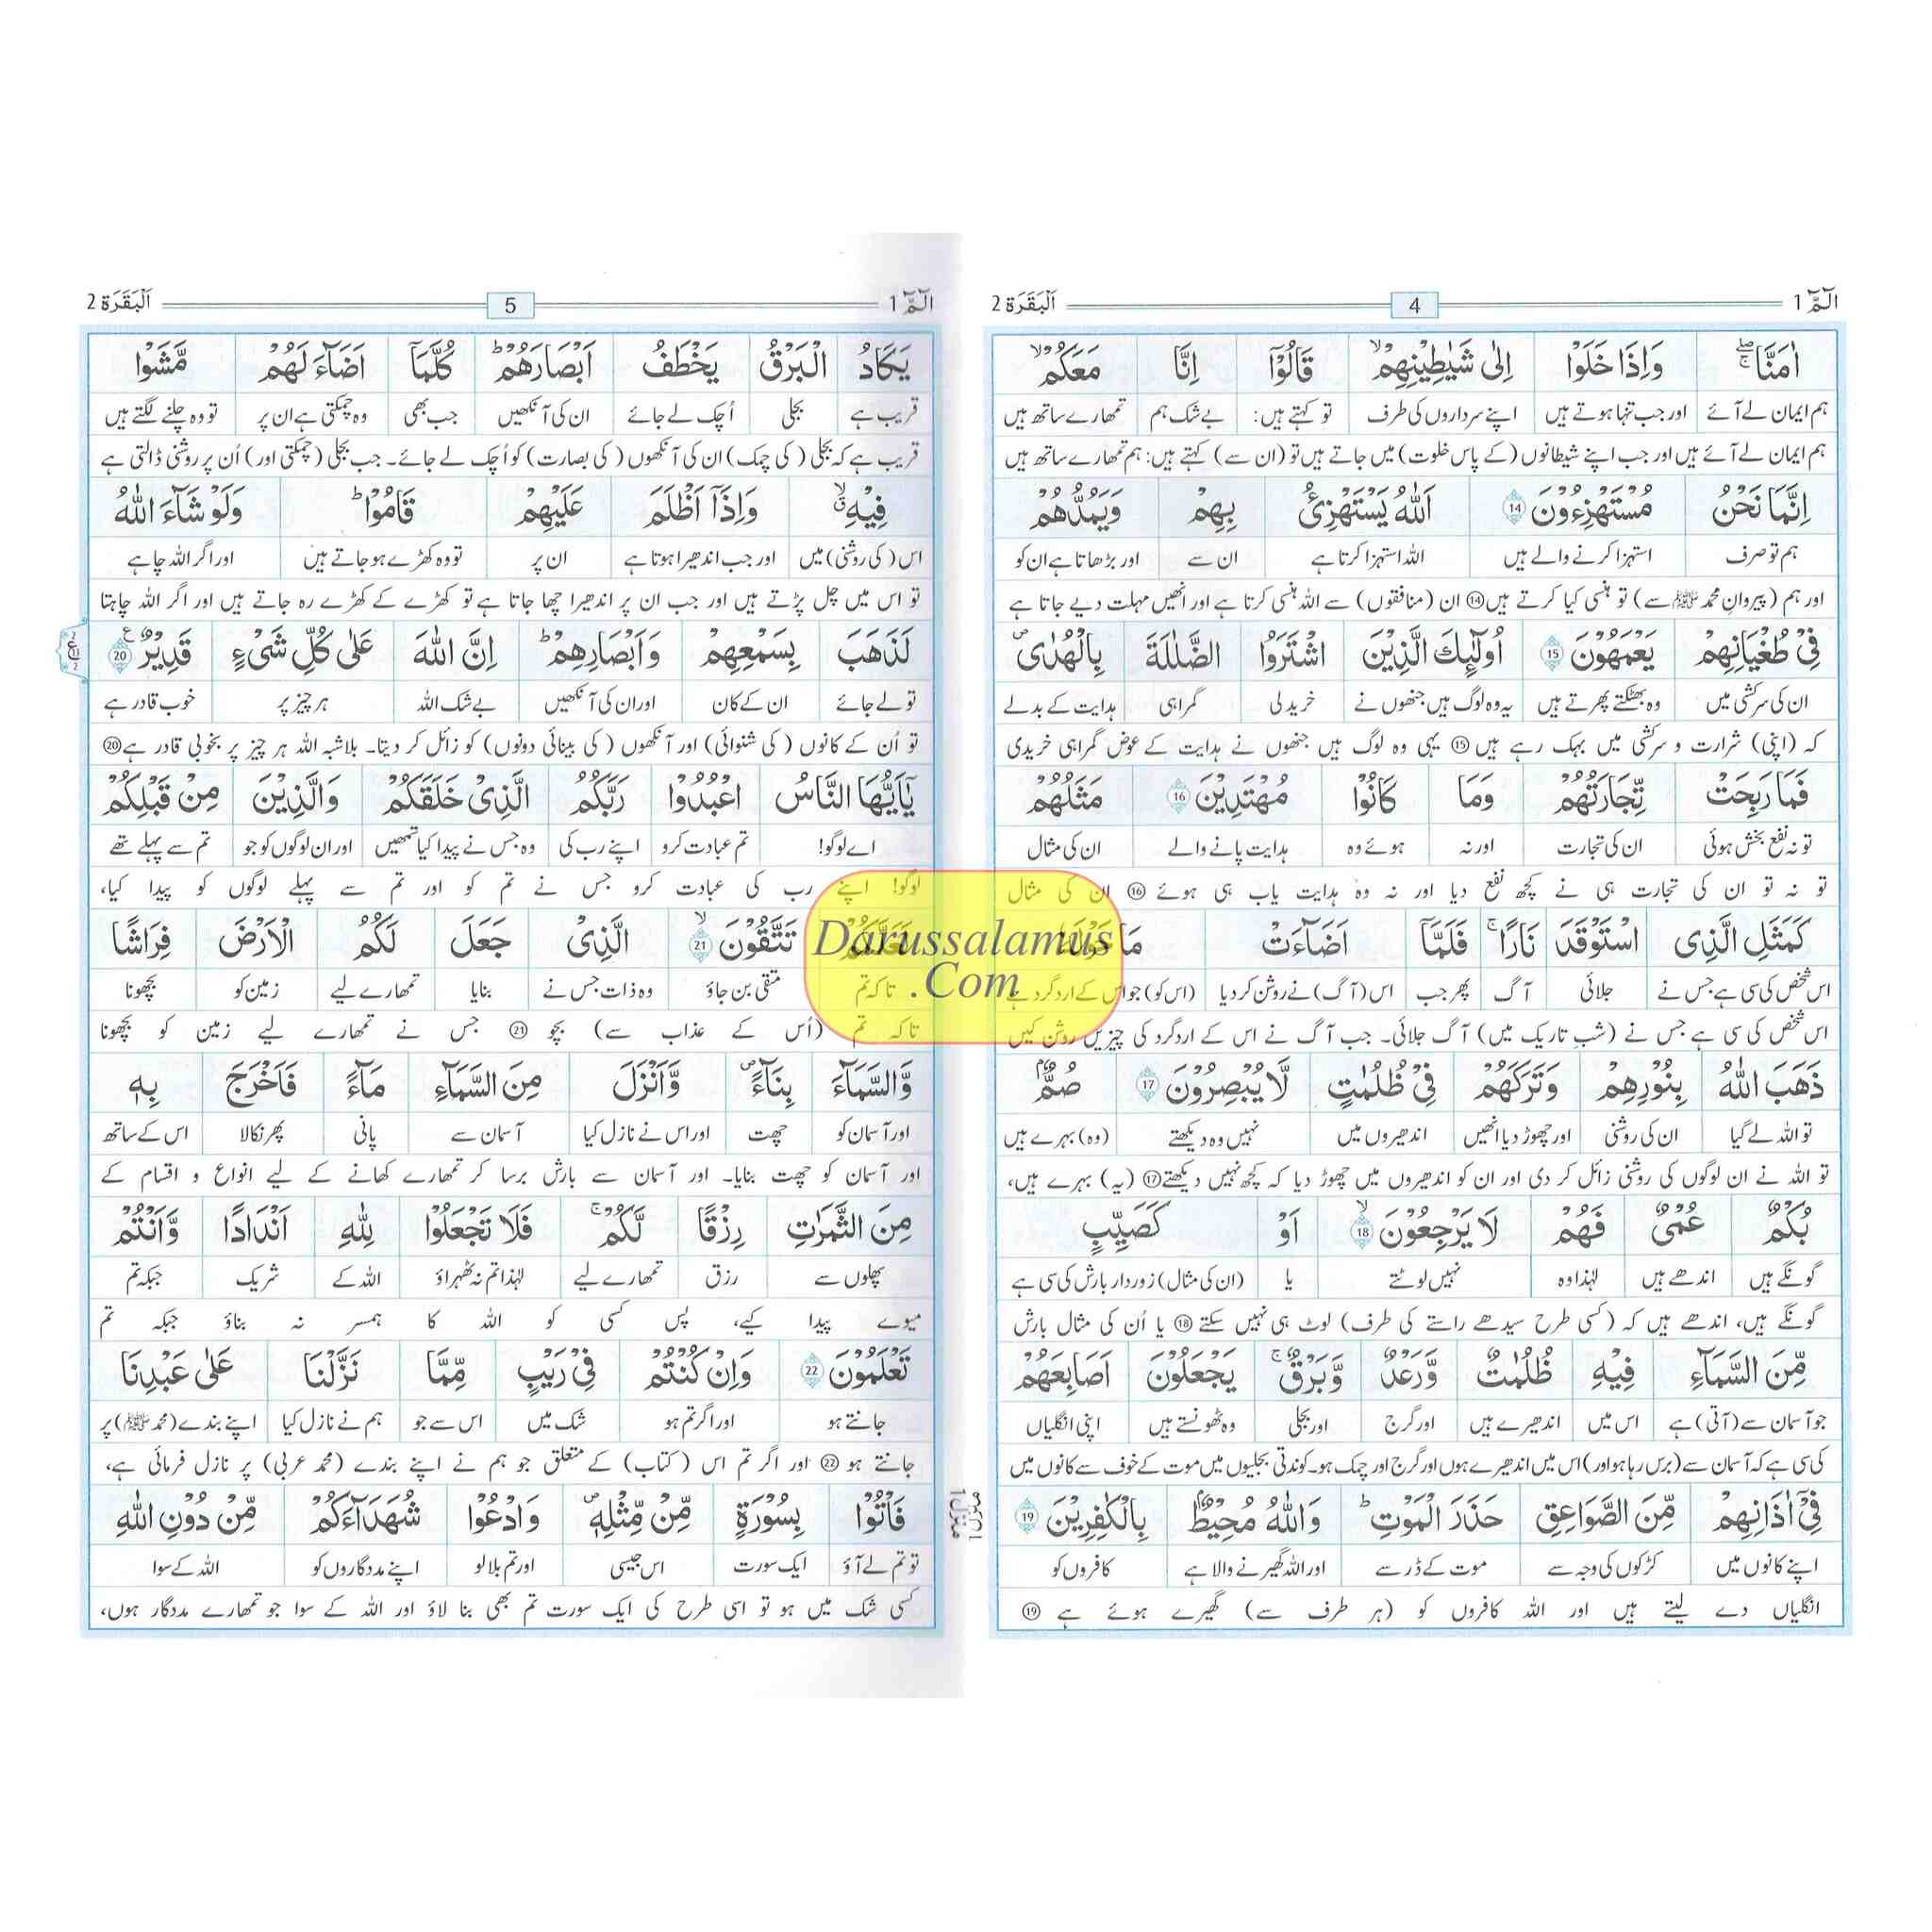 الٓمّٓ 1
4
اَلْبَقَرَة 2
اٰمَنَّا وَاِذَا خَلَوْا اِلٰى شَيٰطِيْنِهِمْ قَالُوْٓا اِنَّا مَعَكُمْ
ہم ایمان لے آئے اور جب تنہا ہوتے ہیں اپنے سرداروں کی طرف تو کہتے ہیں: بے شک ہم تمھارے ساتھ ہیں
ہم ایمان لے آئے ہیں اور جب اپنے شیطانوں (کے پاس خلوت) میں جاتے ہیں تو (ان سے) کہتے ہیں: ہم تمھارے ساتھ ہیں
اِنَّمَا نَحْنُ مُسْتَهْزِءُوْنَ 14 اَللّٰهُ يَسْتَهْزِئُ بِهِمْ وَيَمُدُّهُمْ
ہم تو صرف استہزا کرنے والے ہیں اللہ استہزا کرتا ہے ان سے اور بڑھاتا ہے ان کو
اور ہم (پیروانِ محمد ﷺ سے) تو ہنسی کیا کرتے ہیں ⑭ ان (منافقوں) سے اللہ ہنسی کرتا ہے اور انھیں مہلت دیے جاتا ہے
فِيْ طُغْيَانِهِمْ يَعْمَهُوْنَ 15 اُولٰٓئِكَ الَّذِيْنَ اشْتَرَوُا الضَّلٰلَةَ بِالْهُدٰى
ان کی سرکشی میں وہ بھٹکتے پھرتے ہیں یہ وہ لوگ ہیں جنھوں نے خرید لی گمراہی ہدایت کے بدلے
کہ (اپنی) شرارت و سرکشی میں بہک رہے ہیں ⑮ یہی وہ لوگ ہیں جنھوں نے ہدایت کے عوض گمراہی خریدی
فَمَا رَبِحَتْ تِّجَارَتُهُمْ وَمَا كَانُوْا مُهْتَدِيْنَ 16 مَثَلُهُمْ
تو نہ نفع بخش ہوئی ان کی تجارت اور نہ ہوئے وہ ہدایت پانے والے ان کی مثال
تو نہ تو ان کی تجارت ہی نے کچھ نفع دیا اور نہ وہ ہدایت یاب ہی ہوئے ⑯ ان کی مثال
كَمَثَلِ الَّذِي اسْتَوْقَدَ نَارًا فَلَمَّآ اَضَآءَتْ مَا حَوْلَهٗ
اس شخص کی سی ہے جس نے جلائی آگ پھر جب اس (آگ) نے روشن کر دیا (اس کو) جو اس کے ارد گرد ہے
اس شخص کی سی ہے جس نے (شب تاریک میں) آگ جلائی۔ جب آگ نے اس کے اردگرد کی چیزیں روشن کیں
ذَهَبَ اللّٰهُ بِنُوْرِهِمْ وَتَرَكَهُمْ فِيْ ظُلُمٰتٍ لَّا يُبْصِرُوْنَ 17 صُمٌّۢ
تو اللہ لے گیا ان کی روشنی اور چھوڑ دیا انھیں اندھیروں میں نہیں وہ دیکھتے (وہ) بہرے ہیں
تو اللہ نے ان لوگوں کی روشنی زائل کر دی اور ان کو اندھیروں میں چھوڑ دیا کہ کچھ نہیں دیکھتے ⑰ (یہ) بہرے ہیں،
بُكْمٌ عُمْيٌ فَهُمْ لَا يَرْجِعُوْنَ 18 اَوْ كَصَيِّبٍ
گونگے ہیں اندھے ہیں لہٰذا وہ نہیں لوٹتے یا (ان کی مثال) زوردار بارش کی سی ہے
گونگے ہیں، اندھے ہیں کہ (کسی طرح سیدھے راستے کی طرف) لوٹ ہی نہیں سکتے ⑱ یا اُن کی مثال بارش
مِّنَ السَّمَآءِ فِيْهِ ظُلُمٰتٌ وَّرَعْدٌ وَّبَرْقٌ يَجْعَلُوْنَ اَصَابِعَهُمْ
جو آسمان سے (آتی) ہے اس میں اندھیرے ہیں اور گرج اور بجلی وہ ٹھونستے ہیں اپنی انگلیاں
کی سی ہے کہ آسمان سے (برس رہا ہو اور) اس میں اندھیرے ہوں اور گرج اور چمک ہو۔ کوندتی بجلیوں میں موت کے خوف سے کانوں میں
فِيْٓ اٰذَانِهِمْ مِّنَ الصَّوَاعِقِ حَذَرَ الْمَوْتِ وَاللّٰهُ مُحِيْطٌۢ بِالْكٰفِرِيْنَ 19
اپنے کانوں میں کڑکوں کی وجہ سے موت کے ڈر سے اور اللہ گھیرنے والا ہے کافروں کو
انگلیاں دے لیتے ہیں اور اللہ کافروں کو (ہر طرف سے) گھیرے ہوئے ہے ⑲
منزل 1
الٓمّٓ 1
5
اَلْبَقَرَة 2
يَكَادُ الْبَرْقُ يَخْطَفُ اَبْصَارَهُمْ كُلَّمَآ اَضَآءَ لَهُمْ مَّشَوْا
قریب ہے بجلی اُچک لے جائے ان کی آنکھیں جب بھی وہ چمکتی ہے ان پر تو وہ چلنے لگتے ہیں
قریب ہے کہ بجلی (کی چمک) ان کی آنکھوں (کی بصارت) کو اُچک لے جائے۔ جب بجلی (چمکتی اور) اُن پر روشنی ڈالتی ہے
فِيْهِ وَاِذَآ اَظْلَمَ عَلَيْهِمْ قَامُوْا وَلَوْ شَآءَ اللّٰهُ
اس (کی روشنی) میں اور جب اندھیرا ہوتا ہے ان پر تو وہ کھڑے ہو جاتے ہیں اور اگر اللہ چاہے
تو اس میں چل پڑتے ہیں اور جب ان پر اندھیرا چھا جاتا ہے تو کھڑے کے کھڑے رہ جاتے ہیں اور اگر اللہ چاہتا
لَذَهَبَ بِسَمْعِهِمْ وَاَبْصَارِهِمْ اِنَّ اللّٰهَ عَلٰى كُلِّ شَيْءٍ قَدِيْرٌ 20
تو لے جائے ان کے کان اور ان کی آنکھیں بے شک اللہ ہر چیز پر خوب قادر ہے
تو اُن کے کانوں (کی شنوائی) اور آنکھوں (کی بینائی دونوں) کو زائل کر دیتا۔ بلاشبہ اللہ ہر چیز پر بخوبی قادر ہے ⑳
يٰٓاَيُّهَا النَّاسُ اعْبُدُوْا رَبَّكُمُ الَّذِيْ خَلَقَكُمْ وَالَّذِيْنَ مِنْ قَبْلِكُمْ
اے لوگو! تم عبادت کرو اپنے رب کی وہ جس نے پیدا کیا تمھیں اور ان لوگوں کو جو تم سے پہلے تھے
لوگو! اپنے رب کی عبادت کرو جس نے تم کو اور تم سے پہلے لوگوں کو پیدا کیا،
لَعَلَّكُمْ تَتَّقُوْنَ 21 الَّذِيْ جَعَلَ لَكُمُ الْاَرْضَ فِرَاشًا
تاکہ تم متقی بن جاؤ وہ ذات جس نے بنایا تمھارے لیے زمین کو بچھونا
تاکہ تم (اُس کے عذاب سے) بچو ㉑ جس نے تمھارے لیے زمین کو بچھونا
وَّالسَّمَآءَ بِنَآءً وَّاَنْزَلَ مِنَ السَّمَآءِ مَآءً فَاَخْرَجَ بِهٖ
اور آسمان کو چھت اور اس نے نازل کیا آسمان سے پانی پھر نکالا اس کے ساتھ
اور آسمان کو چھت بنایا۔ اور آسمان سے بارش برسا کر تمھارے کھانے کے لیے انواع و اقسام کے
مِنَ الثَّمَرٰتِ رِزْقًا لَّكُمْ فَلَا تَجْعَلُوْا لِلّٰهِ اَنْدَادًا وَّاَنْتُمْ
پھلوں سے رزق تمھارے لیے لہٰذا تم نہ ٹھہراؤ اللہ کے شریک جبکہ تم
میوے پیدا کیے، پس کسی کو اللہ کا ہمسر نہ بناؤ جبکہ تم
تَعْلَمُوْنَ 22 وَاِنْ كُنْتُمْ فِيْ رَيْبٍ مِّمَّا نَزَّلْنَا عَلٰى عَبْدِنَا
جانتے ہو اور اگر تم ہو شک میں اس سے جو ہم نے نازل کیا اپنے بندے (محمد ﷺ) پر
جانتے ہو ㉒ اور اگر تم اس (کتاب) کے متعلق جو ہم نے اپنے بندے (محمد عربی) پر نازل فرمائی ہے،
فَاْتُوْا بِسُوْرَةٍ مِّنْ مِّثْلِهٖ وَادْعُوْا شُهَدَآءَكُمْ مِّنْ دُوْنِ اللّٰهِ
تو تم لے آؤ ایک سورت اس جیسی اور تم بلا لو اپنے مددگاروں کو اللہ کے سوا
کسی شک میں ہو تو اسی طرح کی ایک سورت تم بھی بنا لاؤ اور اللہ کے سوا جو تمھارے مددگار ہوں،
Darussalamus
.Com